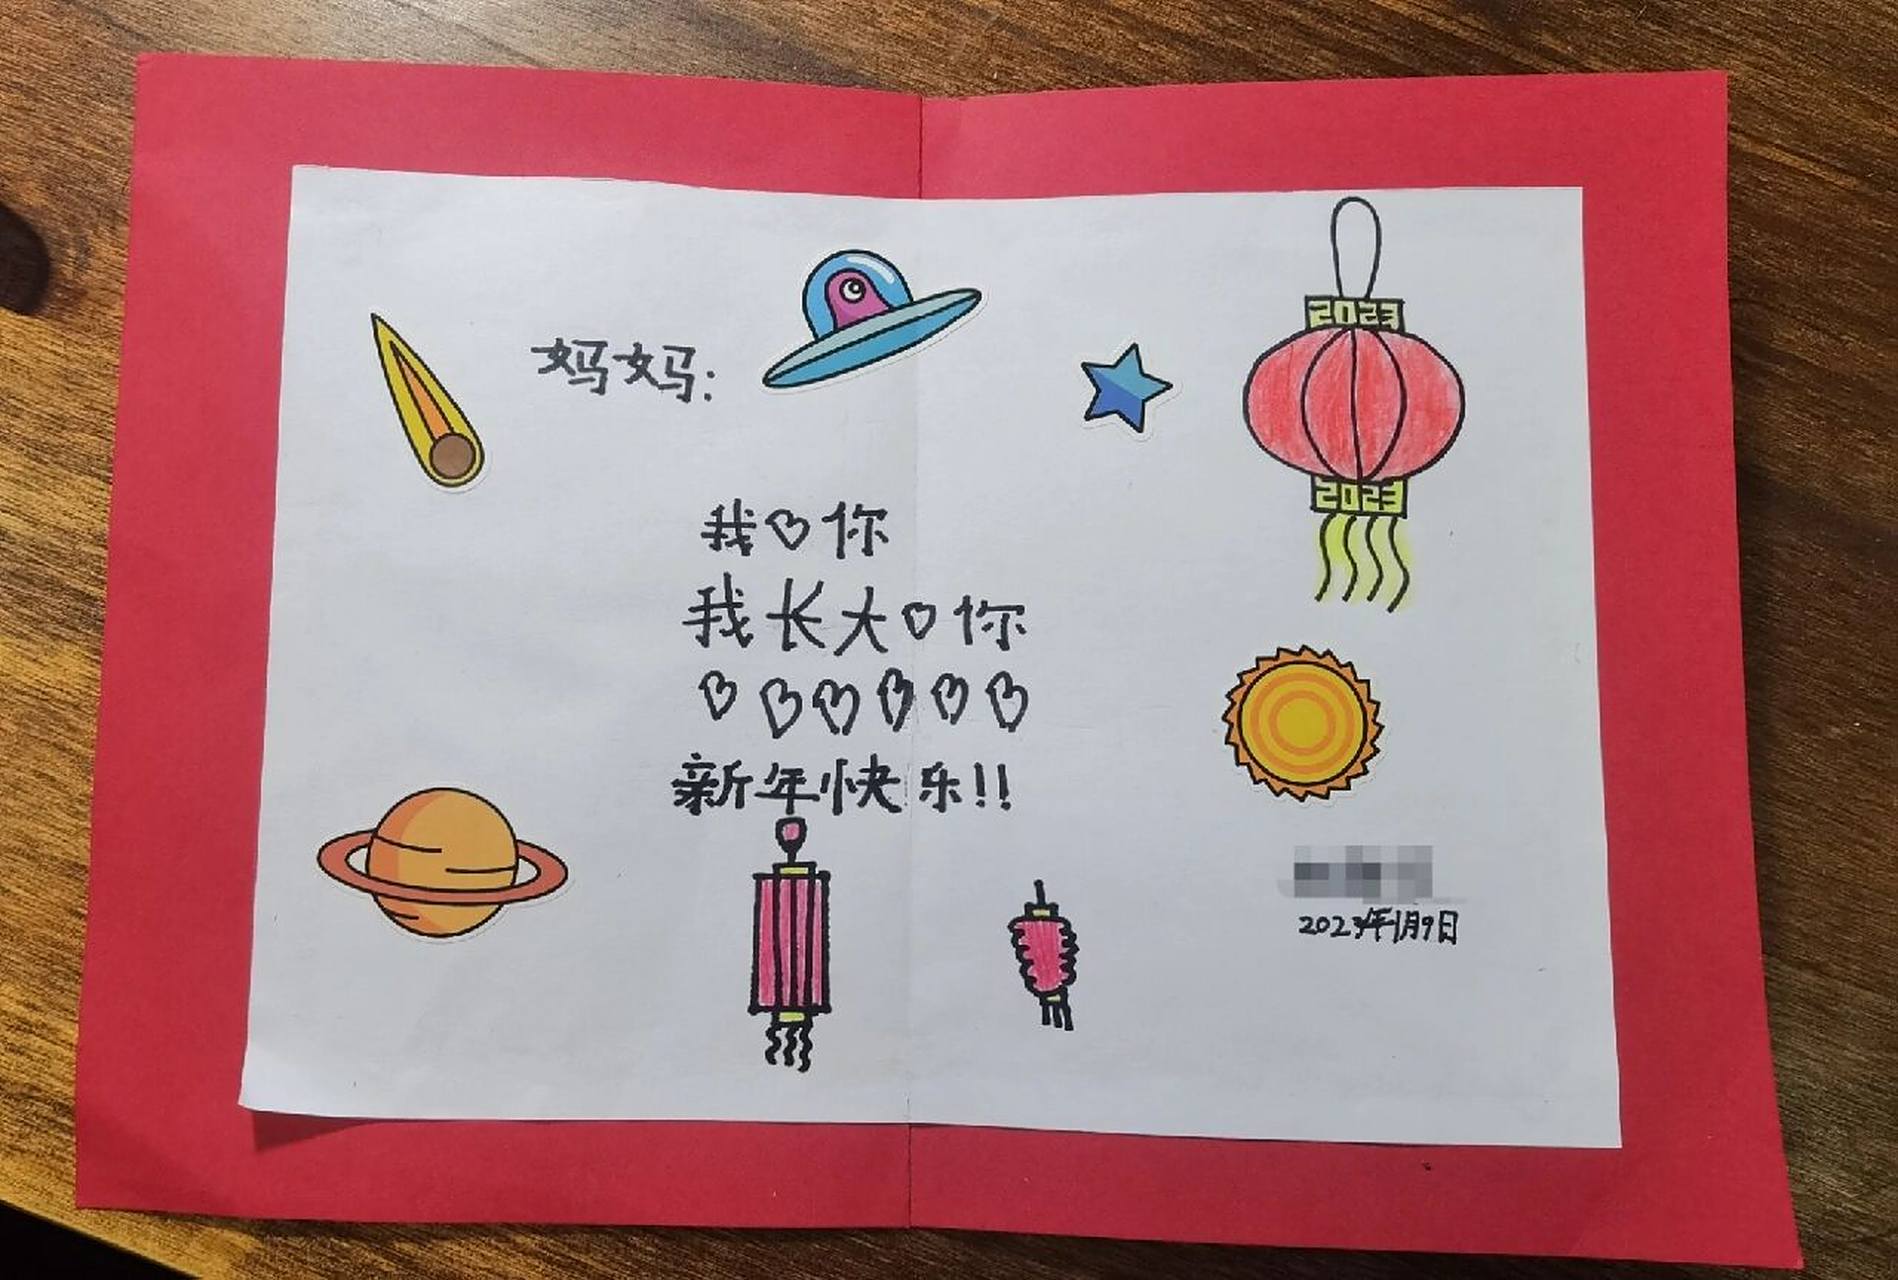 妈妈:
2023
2023
我♡你
我长大♡你
♡♡♡♡♡♡
新年快乐!!
2023年1月9日